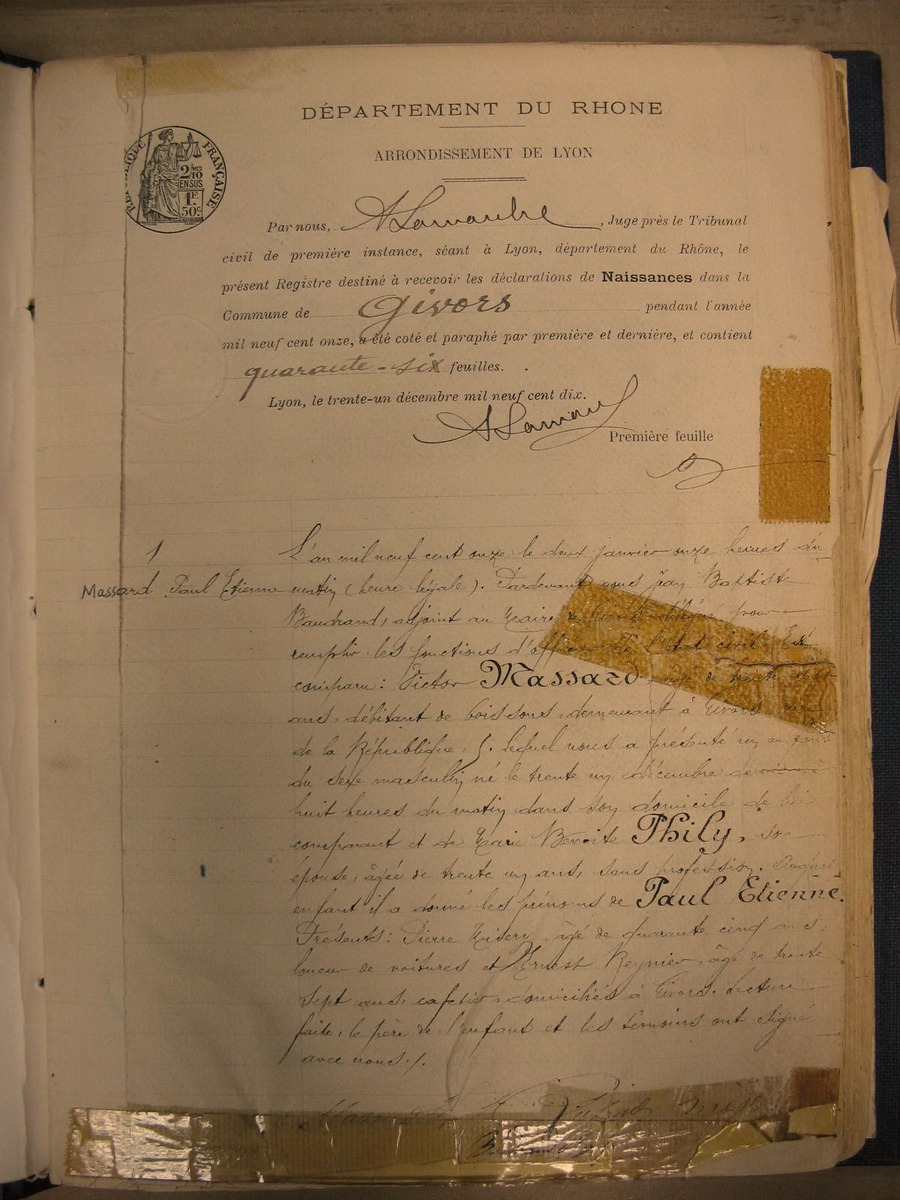 DÉPARTEMENT DU RHONE
ARRONDISSEMENT DE LYON
RÉPUBLIQUE FRANÇAISE
2/10
EN SUS
1F.
50c
Par nous, , Juge près le Tribunal
civil de première instance, séant à Lyon, département du Rhône, le
présent Registre destiné à recevoir les déclarations de Naissances dans la
Commune de Givors pendant l'année
mil neuf cent onze, a été coté et paraphé par première et dernière, et contient
quarante-six feuilles.
Lyon, le trente-un décembre mil neuf cent dix.
Première feuille
1
Massard Paul Etienne
L'an mil neuf cent onze le deux janvier onze heures du
matin (heure légale). Pardevant nous Jean Baptiste
Baudrand, adjoint au Maire de Givors délégué pour
remplir les fonctions d'officier de l'Etat civil Est
comparu: Victor Massard âgé de trente sept
ans, débitant de boissons, demeurant à Givors rue
de la République, 5. lequel nous a présenté un enfant
du sexe masculin né le trente un décembre dernier à
huit heures du matin dans son domicile de lui
comparant et de Marie Benoite Phily, son
épouse, âgée de trente un ans, sans profession. Auquel
enfant il a donné les prénoms de Paul Etienne.
Présents: Pierre âgé de quarante cinq ans,
loueur de voitures et Ernest Reynier, âgé de trente
sept ans, cafetier, domiciliés à Givors. Lecture
faite, le père de l'enfant et les témoins ont signé
avec nous./.